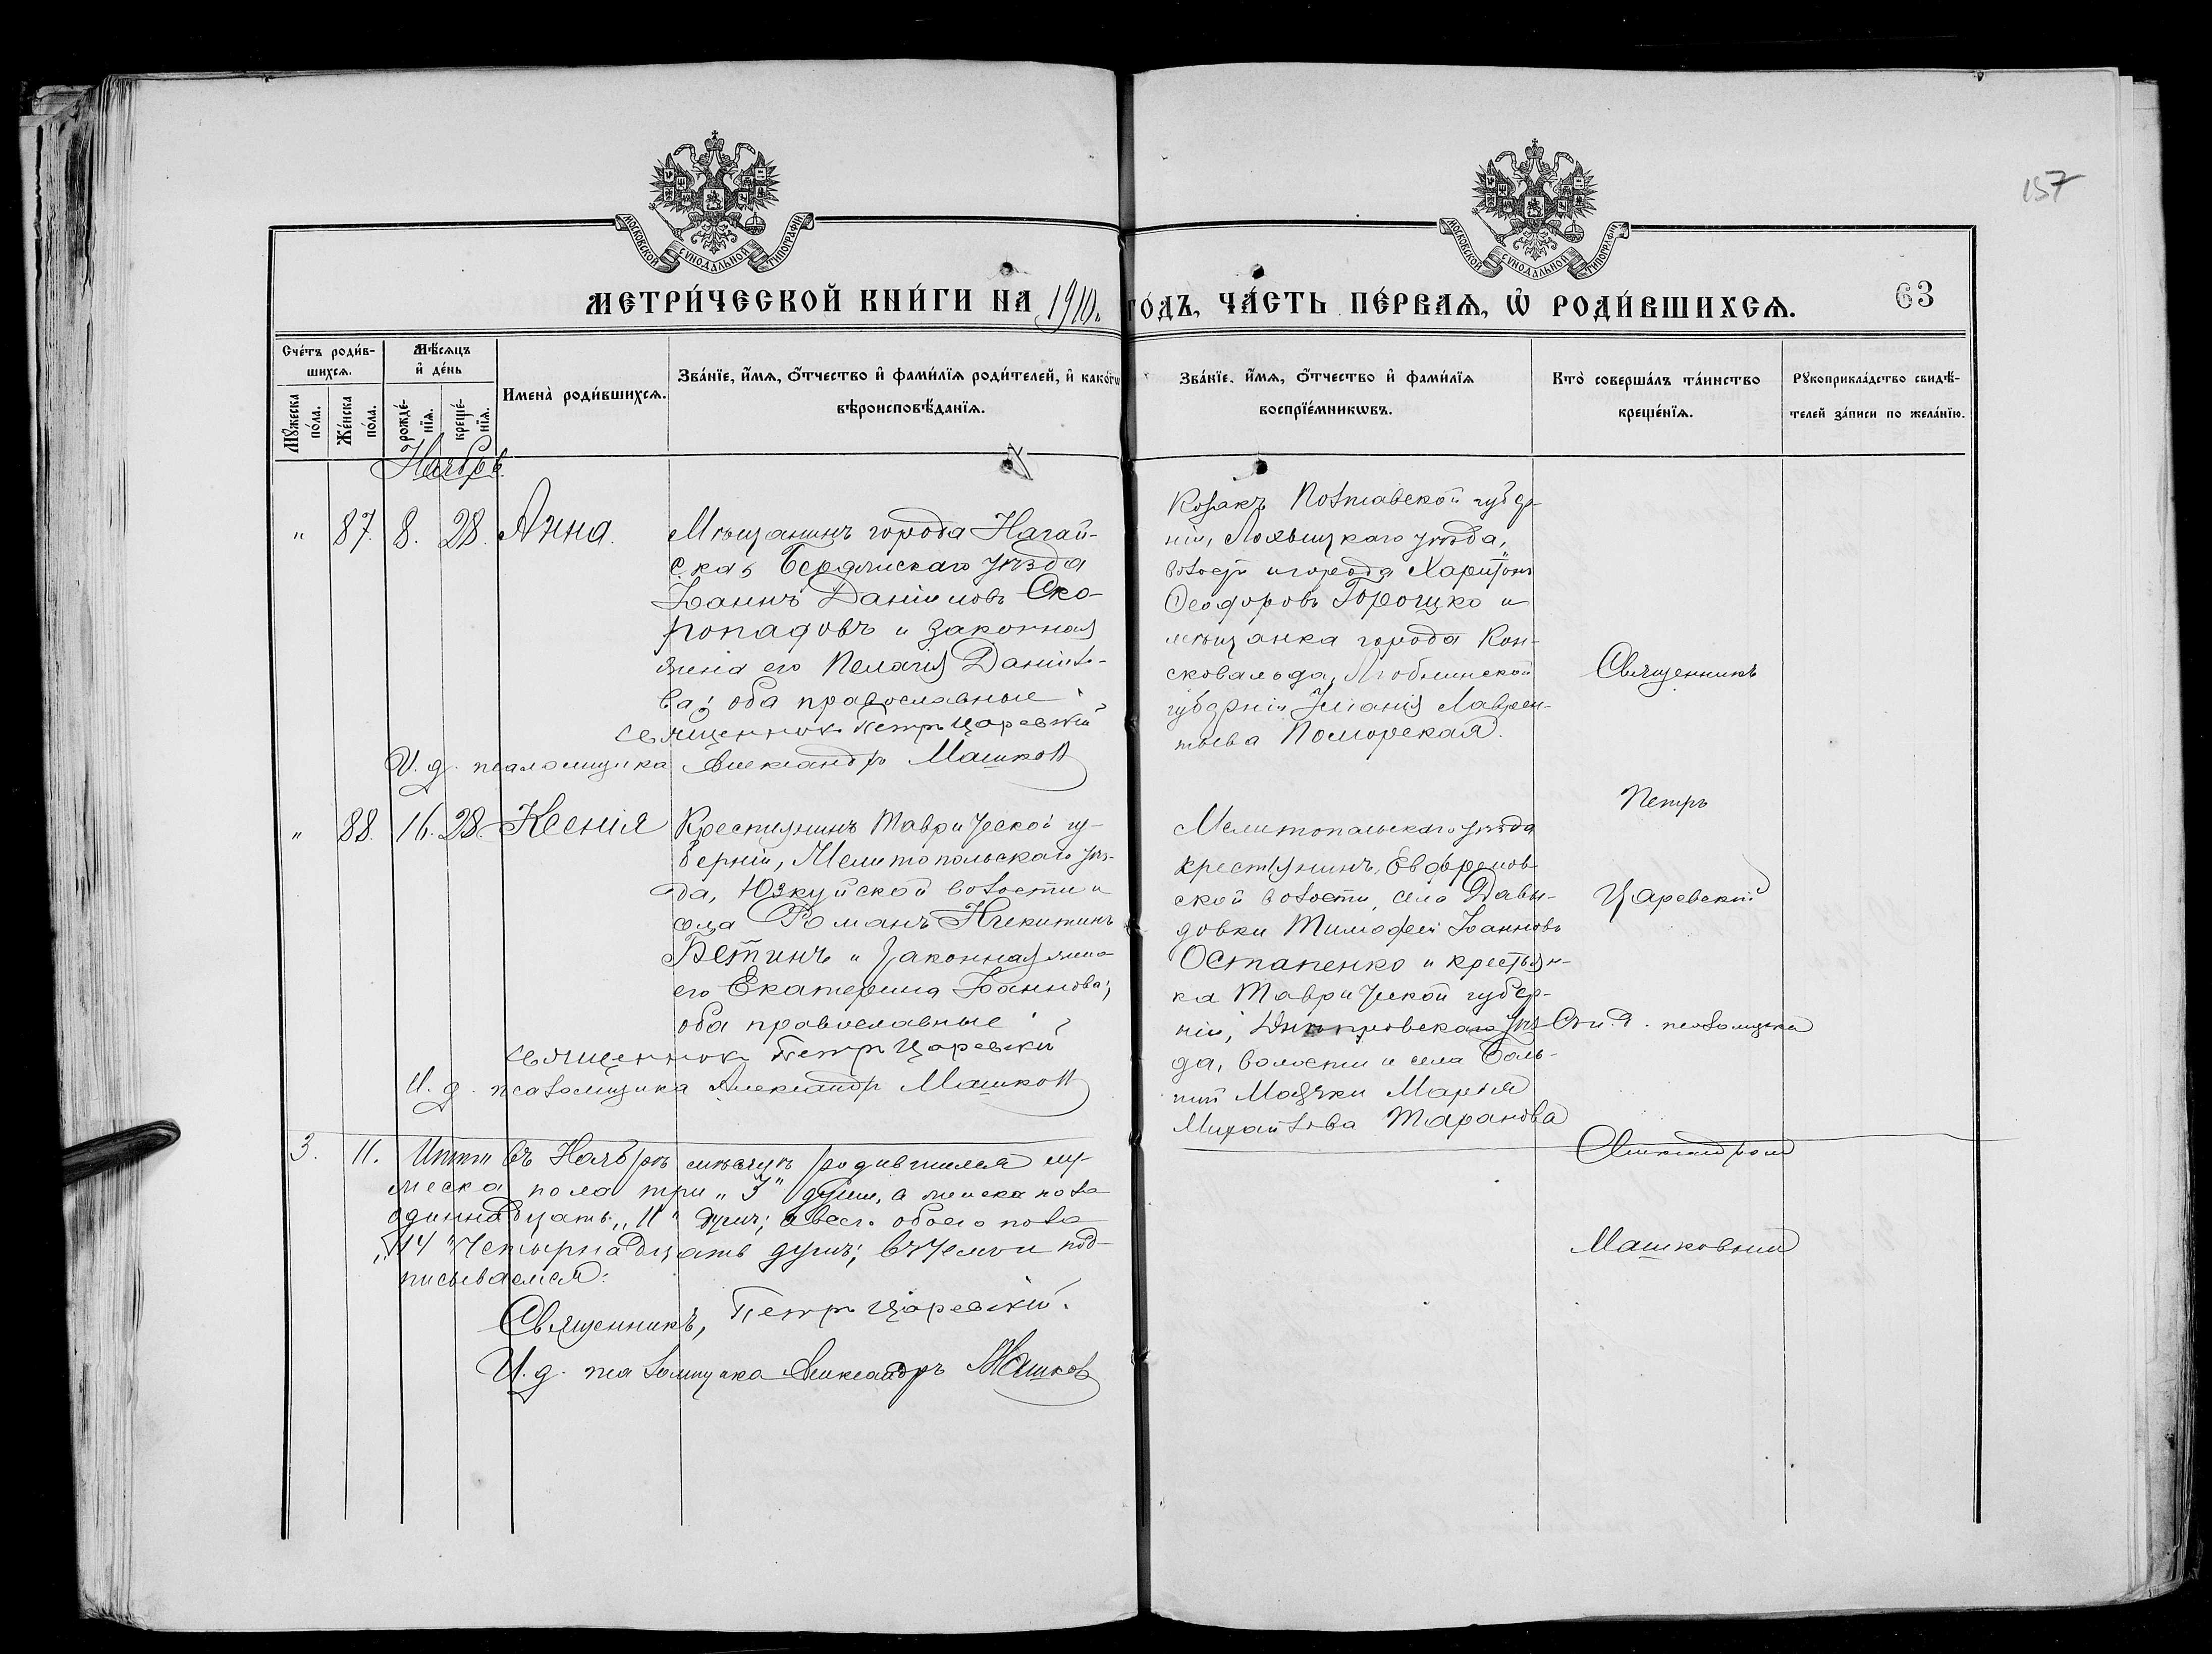 157
МОСКОВСКОЙ СѴНОДАЛЬНОЙ ТИПОГРАФІИ
МОСКОВСКОЙ СѴНОДАЛЬНОЙ ТИПОГРАФІИ
МЕТРИ́ЧЕСКОЙ КНИ́ГИ НА 1910. ГО́ДЪ, ЧА́СТЬ ПЕ́РВАЯ, Ѿ РОДИ́ВШИХСЯ. 63
Сче́тъ роди́в-
шихся.
Мꙋ́жеска по́ла.
Же́нска по́ла.
Мѣ́сяцъ и҆ де́нь
рожде́-
нїя.
креще́-
нїя.
И҆мена̀ роди́вшихся.
Зва́нїе, и҆́мя, о҆́тчество и҆ фами́лїя роди́телей, и҆ како́гѡ
вѣроисповѣ́данїя.
Зва́нїе, и҆́мя, о҆́тчество и҆ фами́лїя
воспрїе́мникѡвъ.
Кто̀ соверша́лъ та́инство
креще́нїя.
Рꙋкоприкла́дство свидѣ́-
телей за́писи по жела́нїю.
Ноябрь
" 87. 8. 28. Анна.
Мѣщанинъ города Нагай-
ска, Бердянскаго уѣзда
Іоаннъ Даніиловъ Ско-
ропадовъ и законная
жена его Пелагія Даніило-
ва; оба православные
священникъ Петръ Царевскій
И. д. псаломщика Александръ Машков
Козакъ Полтавской губер-
ніи, Лохвицкаго уѣзда,
волости и города Харитонъ
Ѳеодоровъ Горошко и
мѣщанка города Кон-
сковальда, Люблинской
губерніи Іуліанія Лаврен-
тьева Поморская.
Священникъ
Петръ
Царевскій
" 88. 16. 28. Ксенія
Крестьянинъ Таврической гу-
берніи, Мелитопольскаго уѣз-
да, Юзкуйской волости и
села Романъ Никитинъ
Бетинъ и законная жена
его Екатерина Іоаннова;
оба православные
священникъ Петръ Царевскій
И. д. псаломщика Александръ Машков
Мелитопольскаго уѣзда
крестьянинъ, Ефремов-
ской волости, села Давы-
довки Тимофей Іоанновъ
Остапенко и крестьян-
ка Таврической губер-
ніи, Днѣпровскаго уѣз-
да, волости и села Боль-
шой Маячки Марія
Михайлова Таранова
Съ и. д. псаломщика
Александромъ
Машковымъ
3. 11. Итого въ Ноябрѣ мѣсяцѣ родившихся му-
жеска пола три „3" души, а женска пола
одиннадцать „11" душъ; а всего обоего пола
„14" четырнадцать душъ; въ чемъ и под-
писываемся:
Священникъ, Петръ Царевскій.
И. д. псаломщика Александръ Машков